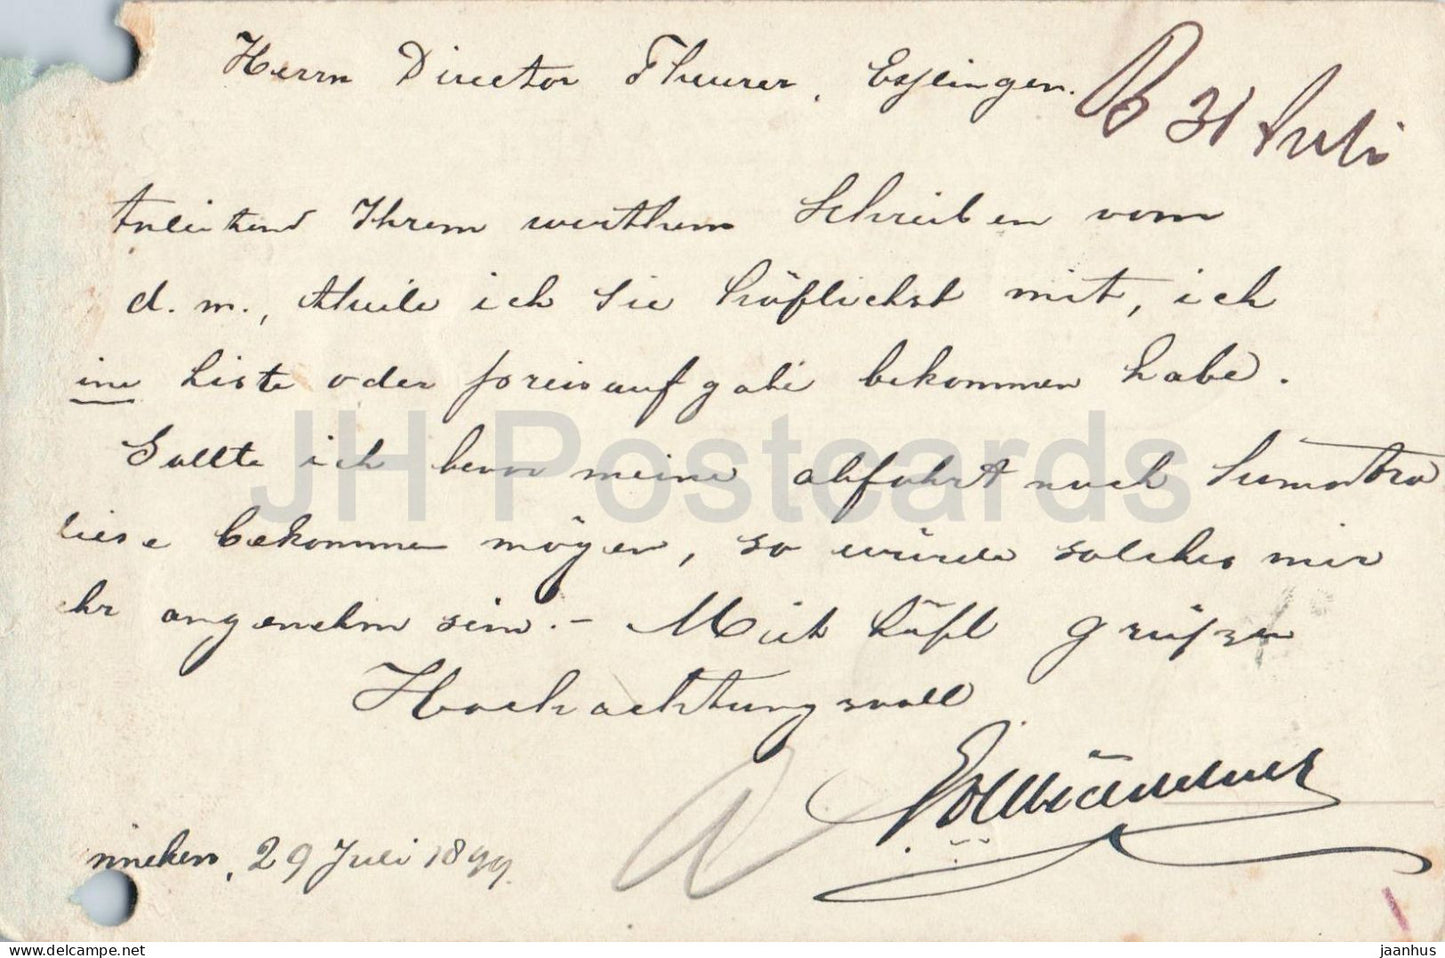 Herrn Director Theurer, Esslingen.
B 31 Juli
Ihrem werthem Schreiben vom
d. m., theile ich Sie höflichst mit, ich
ine Liste oder Preisaufgabe bekommen habe.
Sollte ich bevor meine abfahrt nach Sumatra
diese bekommen mögen, so würde solches mir
ehr angenehm sein. - Mit höfl grüszen
Hochachtungsvoll
nneken, 29 Juli 1899.
JH Postcards
www.delcampe.net
jaanhus